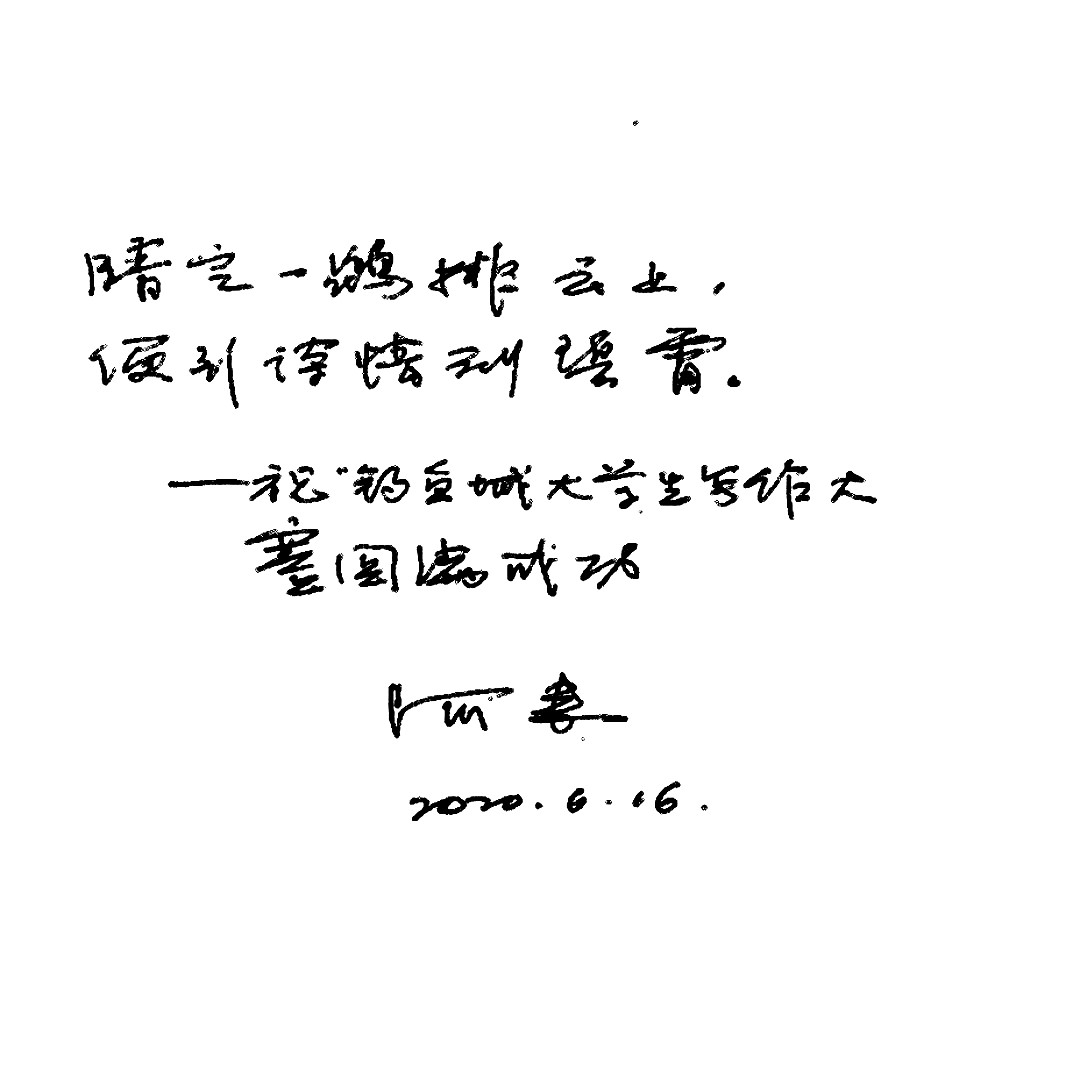 晴空一鹤排云上，
便引诗情到碧霄.
——祝“钓鱼城大学生写作大
赛圆满成功
2020.6.16.